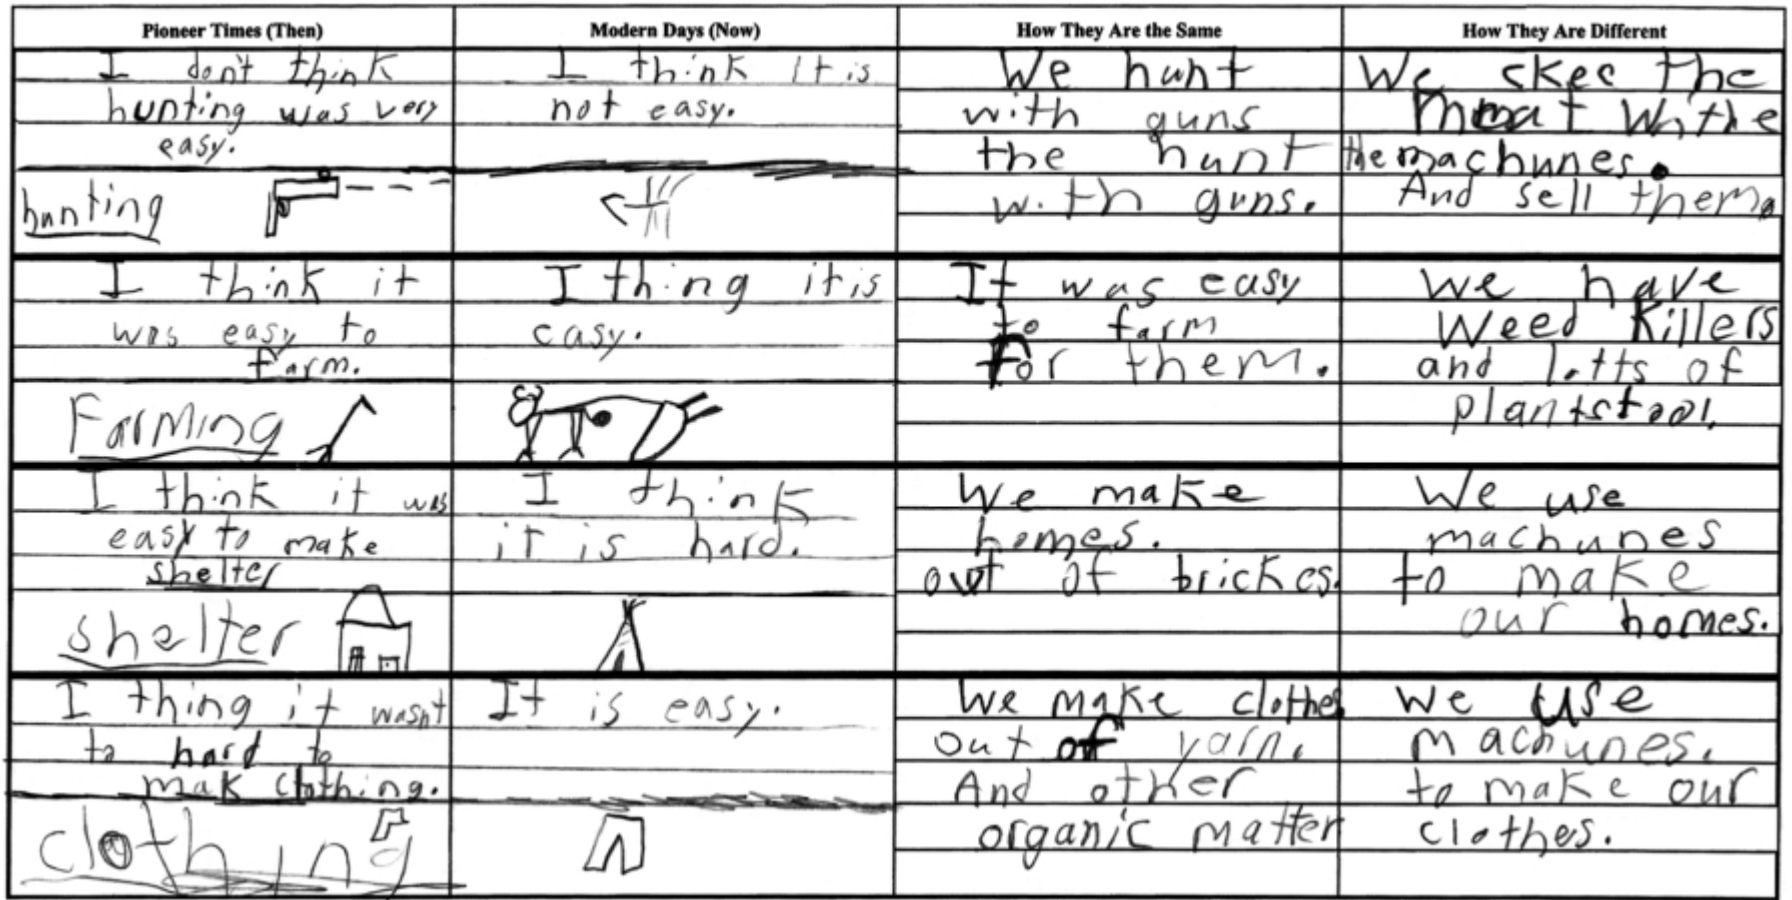 Pioneer Times (Then)
Modern Days (Now)
How They Are the Same
How They Are Different
I don't think
hunting was very
easy.
hunting
I think it is
not easy.
We hunt
with guns
the hunt
with guns.
We skee the
meat
the machunes.
And sell them.
I think it
was easy to
farm.
Farming
I thing it is
easy.
It was easy
to farm
for them.
We have
Weed killers
and lotts of
plantstool.
I think it was
easy to make
shelter
shelter
I think
it is hard.
We make
homes.
out of brickes.
We use
machunes
to make
our homes.
I thing it wasnt
to hard to
mak clothing.
clothing
It is easy.
We make clothes
out of yarn.
And other
organic matter
We use
machunes.
to make our
clothes.